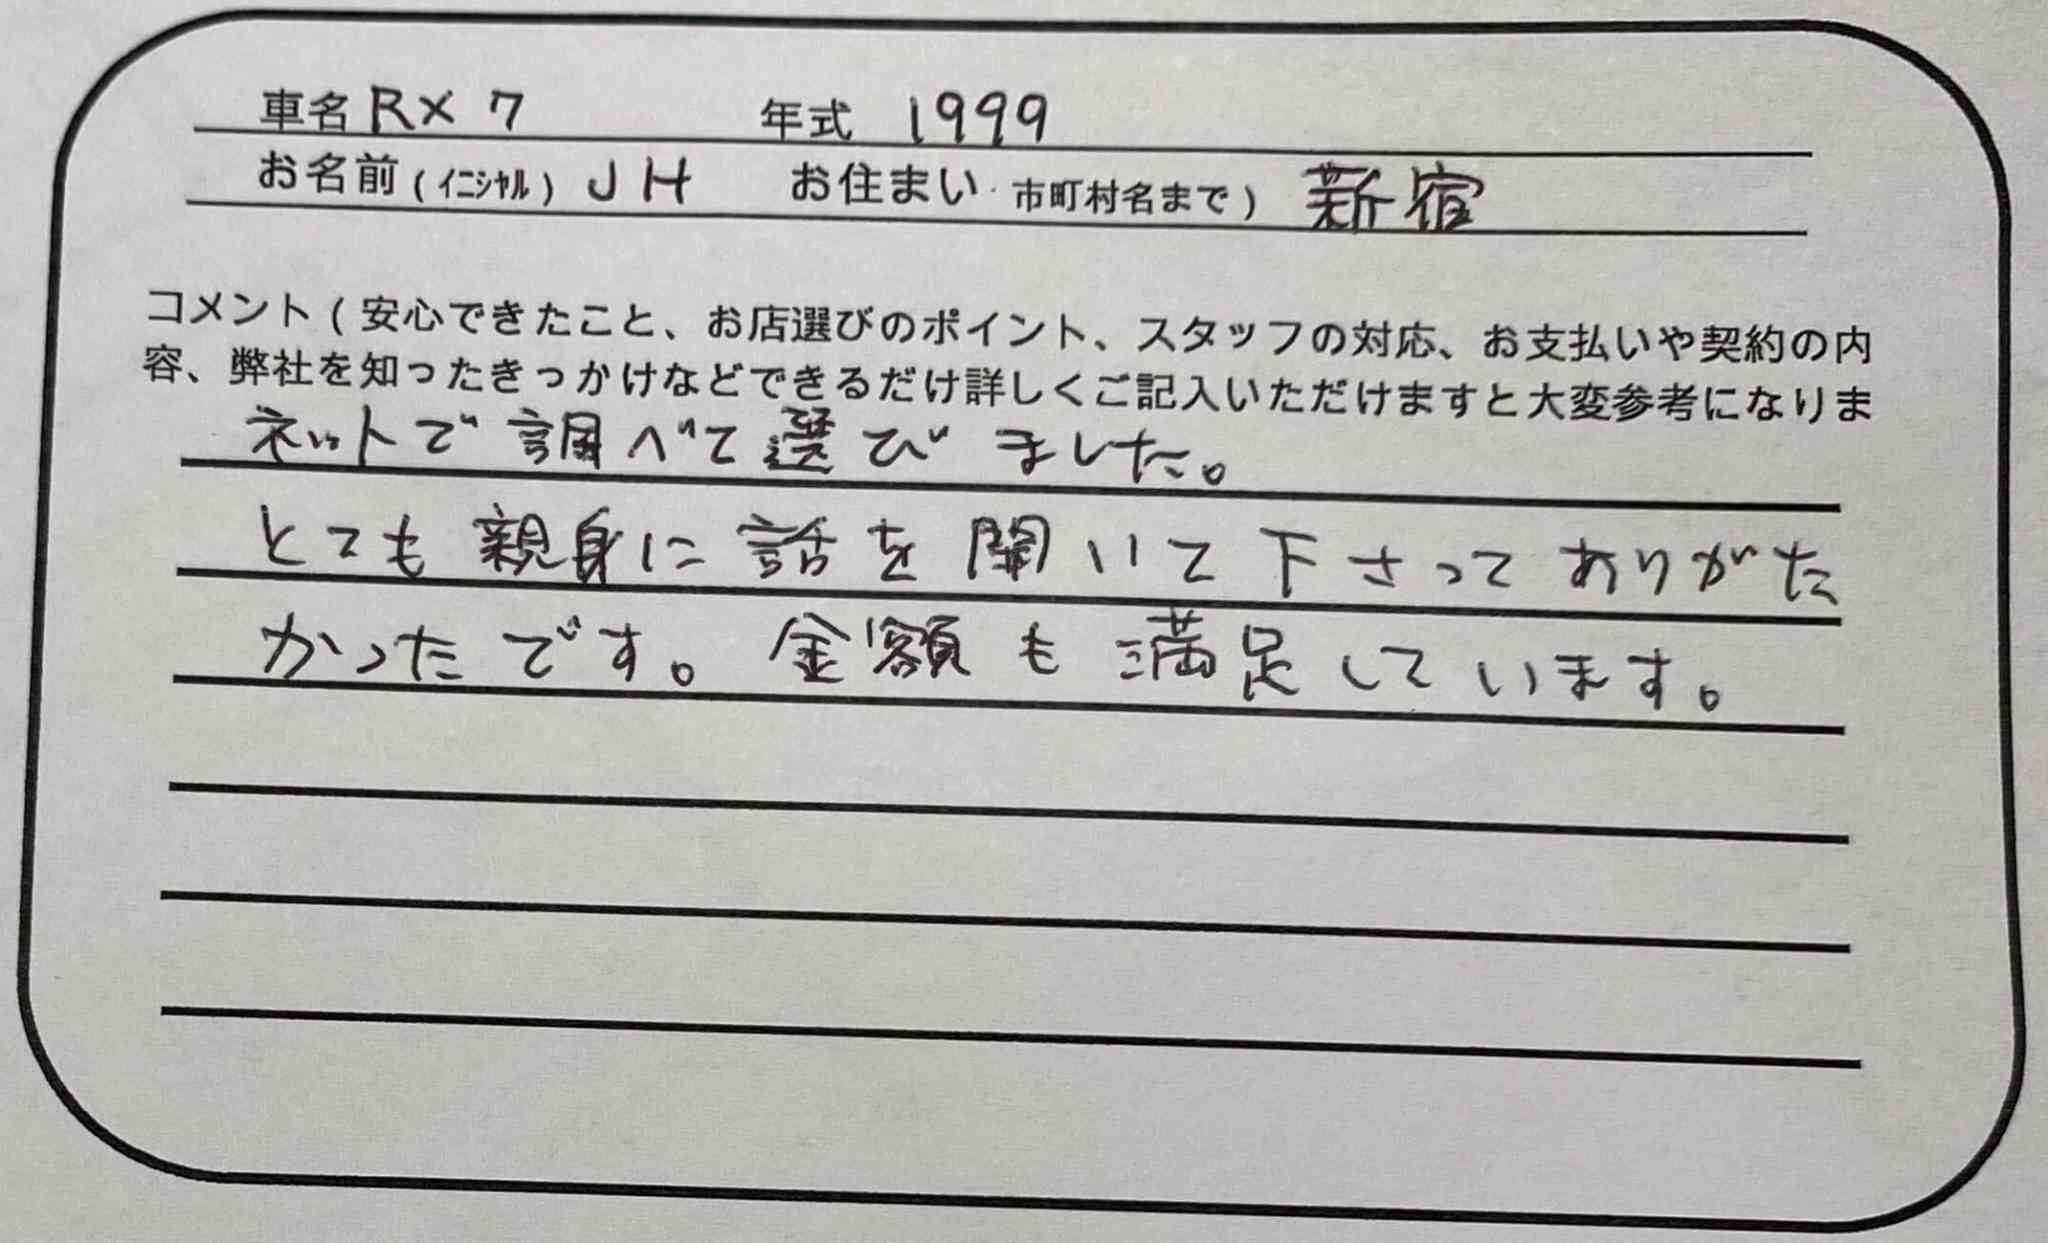 車名 RX 7 年式 1999
お名前 (ｲﾆｼｬﾙ) JH お住まい 市町村名まで) 新宿
コメント (安心できたこと、お店選びのポイント、スタッフの対応、お支払いや契約の内
容、弊社を知ったきっかけなどできるだけ詳しくご記入いただけますと大変参考になりま
ネットで調べて選びました。
とても親身に話を聞いて下さってありがた
かったです。金額も満足しています。